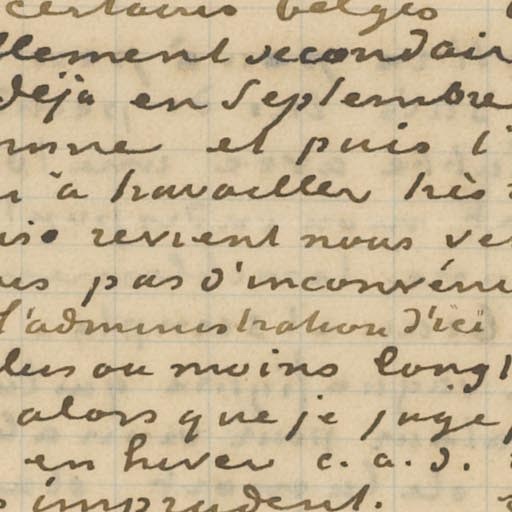 certains belges
llement secondair
déjà en Septembre
mne et puis l'
à travailler très
revient nous ve
us pas d'inconvéni
l'administration d'ici
lus ou moins longt
alors que je juge
en hiver c. a. d.
imprudent.